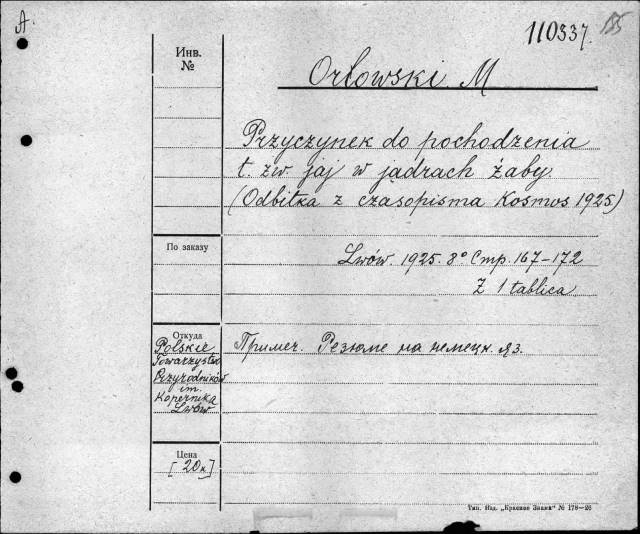 A.
110337.
155
Инв.
№
Orłowski. M
Przyczynek do pochodzenia
t. zw. jaj w jądrach żaby.
(Odbitka z czasopisma Kosmos 1925)
По заказу
Lwów. 1925. 8° Стр. 167–172
Z 1 tablica
Откуда
Polskie
Towarzystw
Przyrodników
im.
Kopernika
Lwów
Примеч. Резюме на немецк. яз.
Цена
[20к]
Тип. Изд. „Красное Знамя" № 178—26